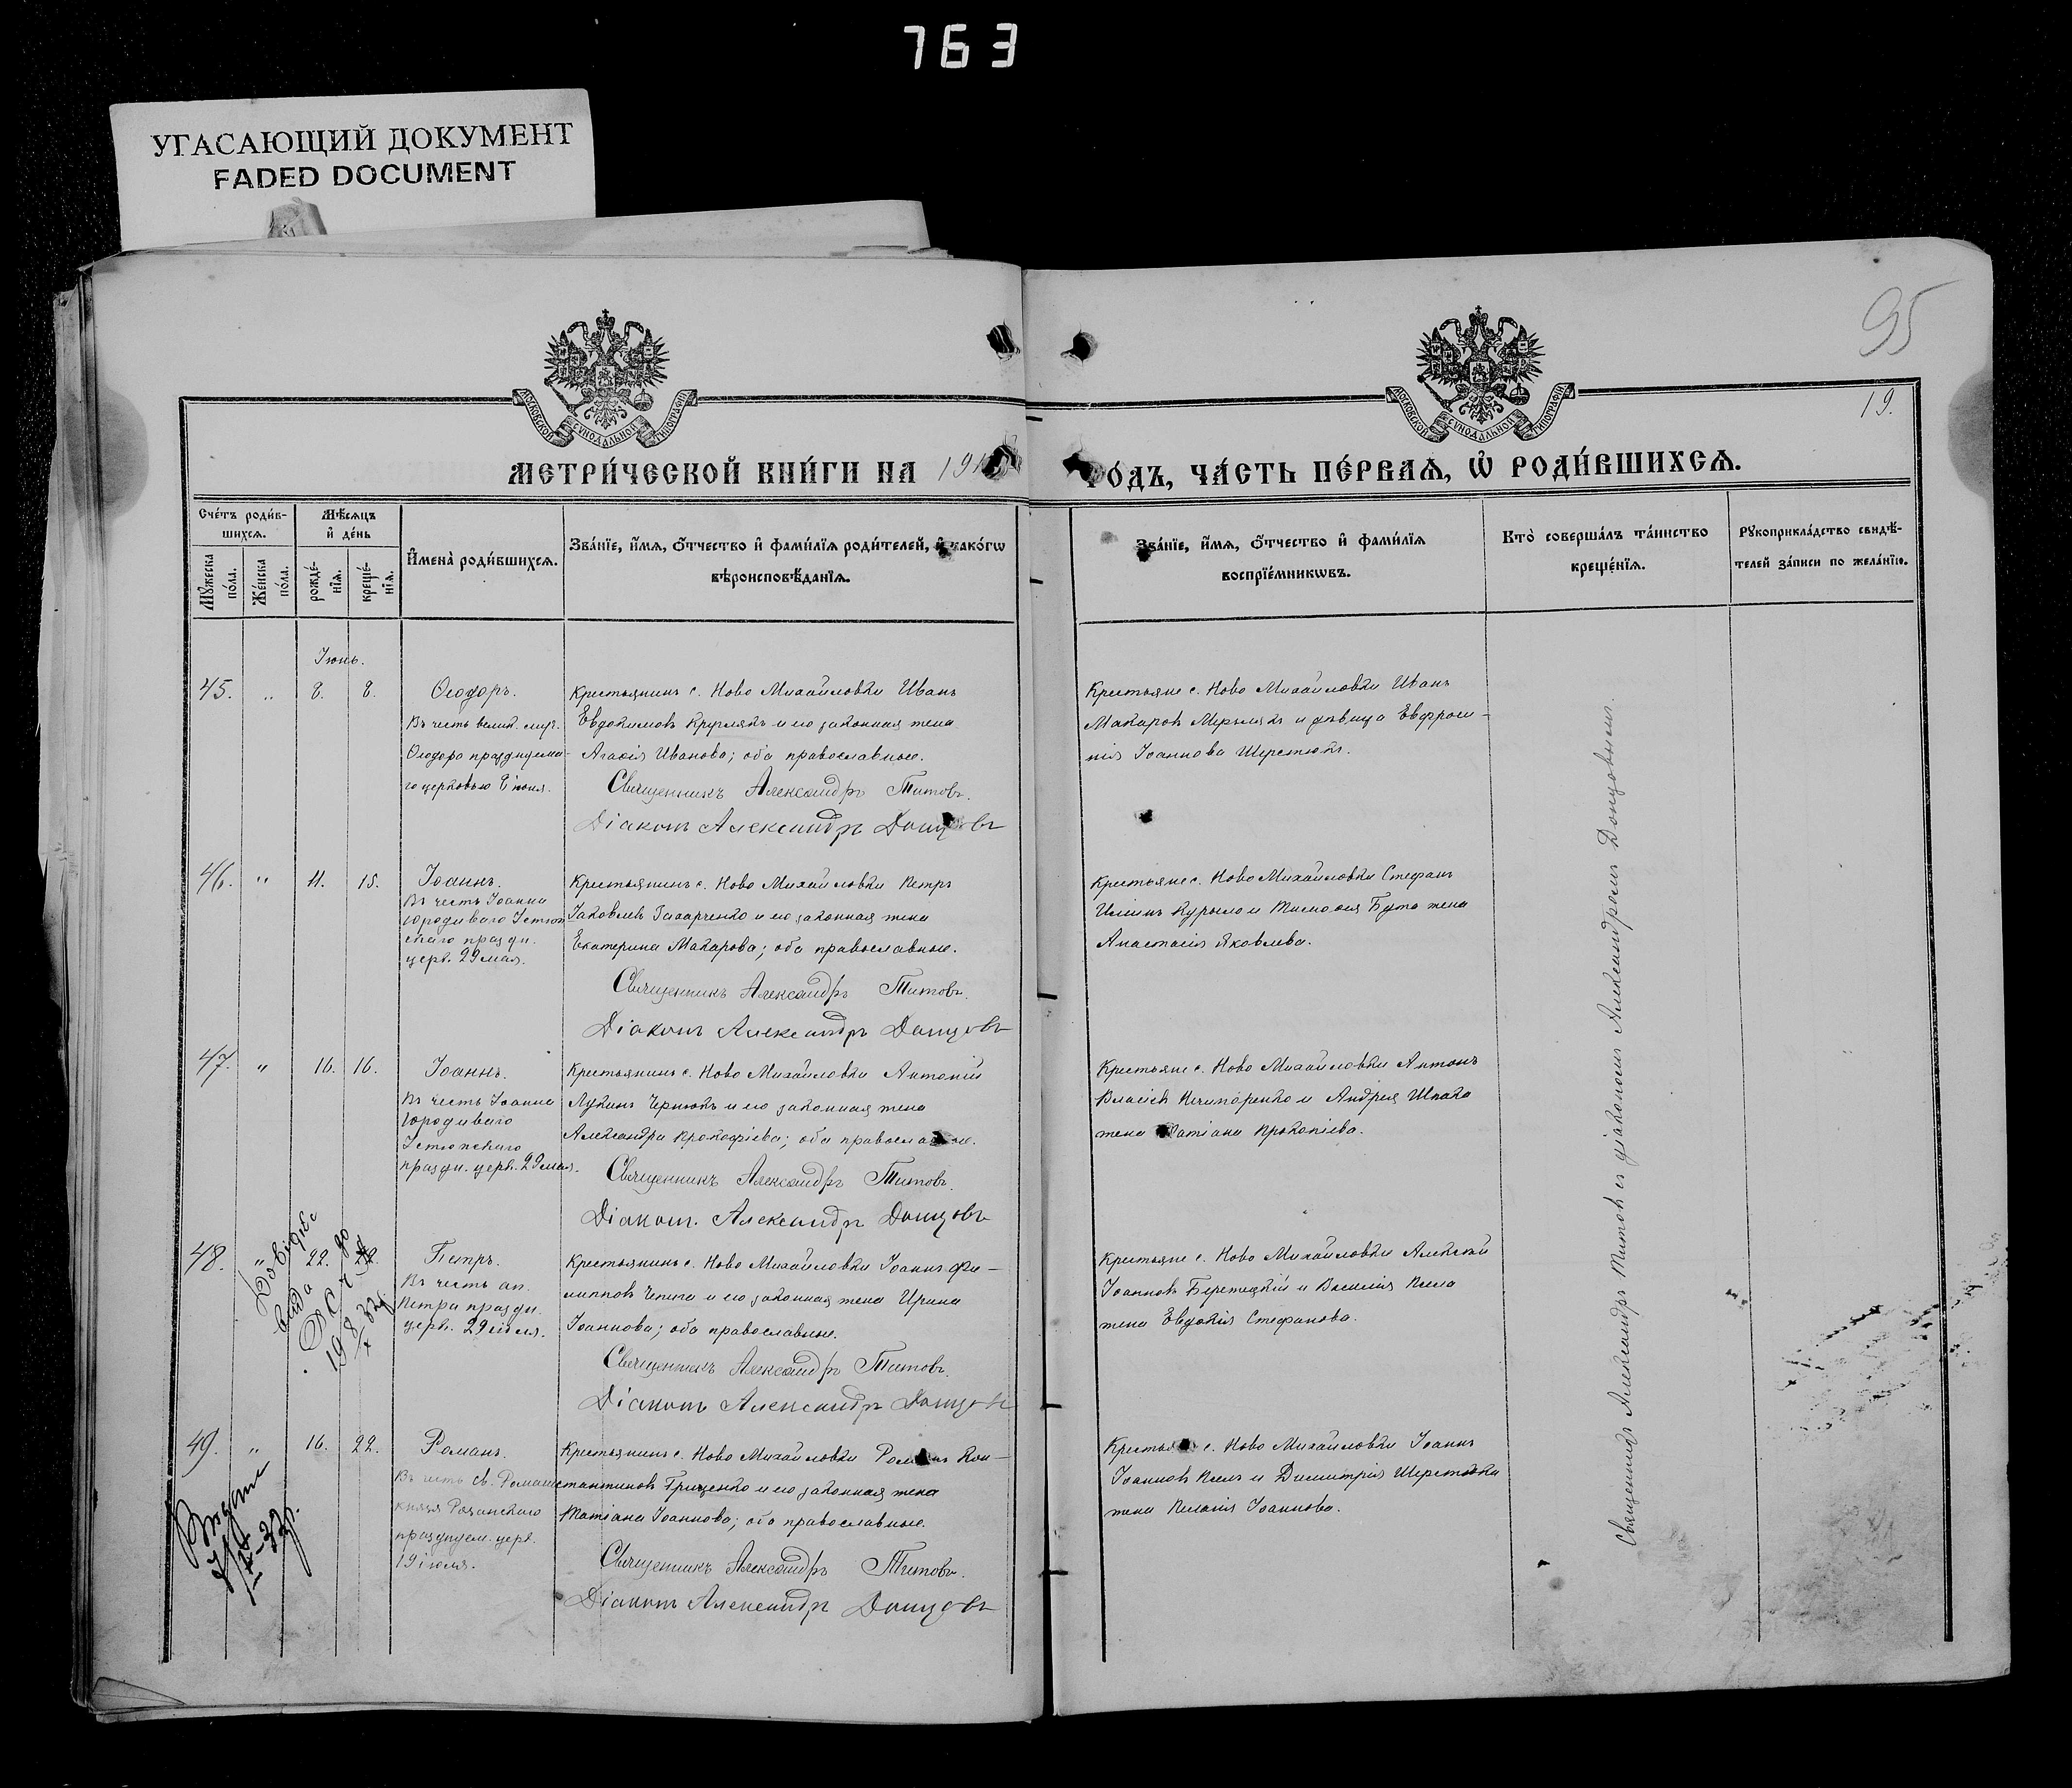 763
УГАСАЮЩИЙ ДОКУМЕНТ
FADED DOCUMENT
95
19.
МОСКОВСКОЙ СѴНОДАЛЬНОЙ ТИПОГРАФІИ
МОСКОВСКОЙ СѴНОДАЛЬНОЙ ТИПОГРАФІИ
МЕТРИ́ЧЕСКОЙ КНИ́ГИ НА 191
ГО́ДЪ, ЧА́СТЬ ПЕ́РВАѦ, Ѡ҆ РОДИ́ВШИХСѦ.
Сче́тъ роди́в-
шихсѧ.
Мꙋ́жеска по́ла.
Же́нска по́ла.
Мѣ́сѧцъ
и҆ де́нь
рожде́-
нїѧ.
креще́-
нїѧ.
И҆мена̀ роди́вшихсѧ.
Зва́нїе, и҆́мѧ, ѻ҆́тчество и҆ фами́лїѧ роди́телей, и҆ како́гѡ
вѣроисповѣ́данїѧ.
Зва́нїе, и҆́мѧ, ѻ҆́тчество и҆ фами́лїѧ
воспрїе́мникѡвъ.
Кто̀ соверша́лъ та́инство
креще́нїѧ.
Рꙋкоприкла́дство свидѣ́-
телей за́писи по жела́нїю.
Іюнь.
45. „ 8. 8.
Ѳеодоръ.
Въ честь велик. муч.
Ѳеодора празднуема-
го церковью 8 іюня.
Крестьянинъ с. Ново Михайловки Иванъ
Евдокимовъ Кругликъ и его законная жена
Агаѳія Иванова; оба православные.
Священникъ Александръ Титовъ.
Діаконъ Александръ Донцовъ
Крестьяне с. Ново Михайловки Иванъ
Макаровъ и дѣвица Евфроси-
нія Іоаннова Шерстюкъ.
46. „ 11. 15.
Іоаннъ.
Въ честь Іоанна
юродиваго Устюж
скаго праздн.
церк. 29 мая.
Крестьянинъ с. Ново Михайловки Петръ
Іаковлевъ и его законная жена
Екатерина Макарова; оба православные.
Священникъ Александръ Титовъ.
Діаконъ Александръ Донцовъ
Крестьяне с. Ново Михайловки Стефанъ
Илiинъ Курыло и Тимоѳея Бута жена
Анастасія Яковлева.
47. „ 16. 16.
Іоаннъ.
Въ честь Іоанна
юродиваго
Устюжскаго
праздн. церк. 29 мая.
Крестьянинъ с. Ново Михайловки Антоній
Лукинъ Чернюкъ и его законная жена
Александра Прокофіева; оба православные.
Священникъ Александръ Титовъ.
Діаконъ Александръ Донцовъ
Крестьяне с. Ново Михайловки Антонъ
Власіевъ Нечипоренко и Андрея Шпака
жена Татіана Прокопіева.
48. „ 22.
Петръ.
Въ честь ап.
Петра праздн.
церк. 29 іюня.
Крестьянинъ с. Ново Михайловки Іоаннъ Фи-
липповъ Чепига и его законная жена Ирина
Іоаннова; оба православные.
Священникъ Александръ Титовъ.
Діаконъ Александръ Донцовъ
Крестьяне с. Ново Михайловки Алексѣй
Іоанновъ Берегецкій и Василія
жена Евдокія Стефанова.
49. „ 16. 22.
Романъ.
Въ честь св. Романа
князя Рязанскаго
празднуем. церк.
19 іюля.
Крестьянинъ с. Ново Михайловки Романъ Кон-
стантиновъ Гриценко и его законная жена
Татіана Іоаннова; оба православные.
Священникъ Александръ Титовъ.
Діаконъ Александръ Донцовъ
Крестьяне с. Ново Михайловки Іоаннъ
Іоанновъ и Димитрія Шерстюка
жена Пелагія Іоаннова.
Священникъ Александръ Титовъ съ діакономъ Александромъ Донцовымъ.